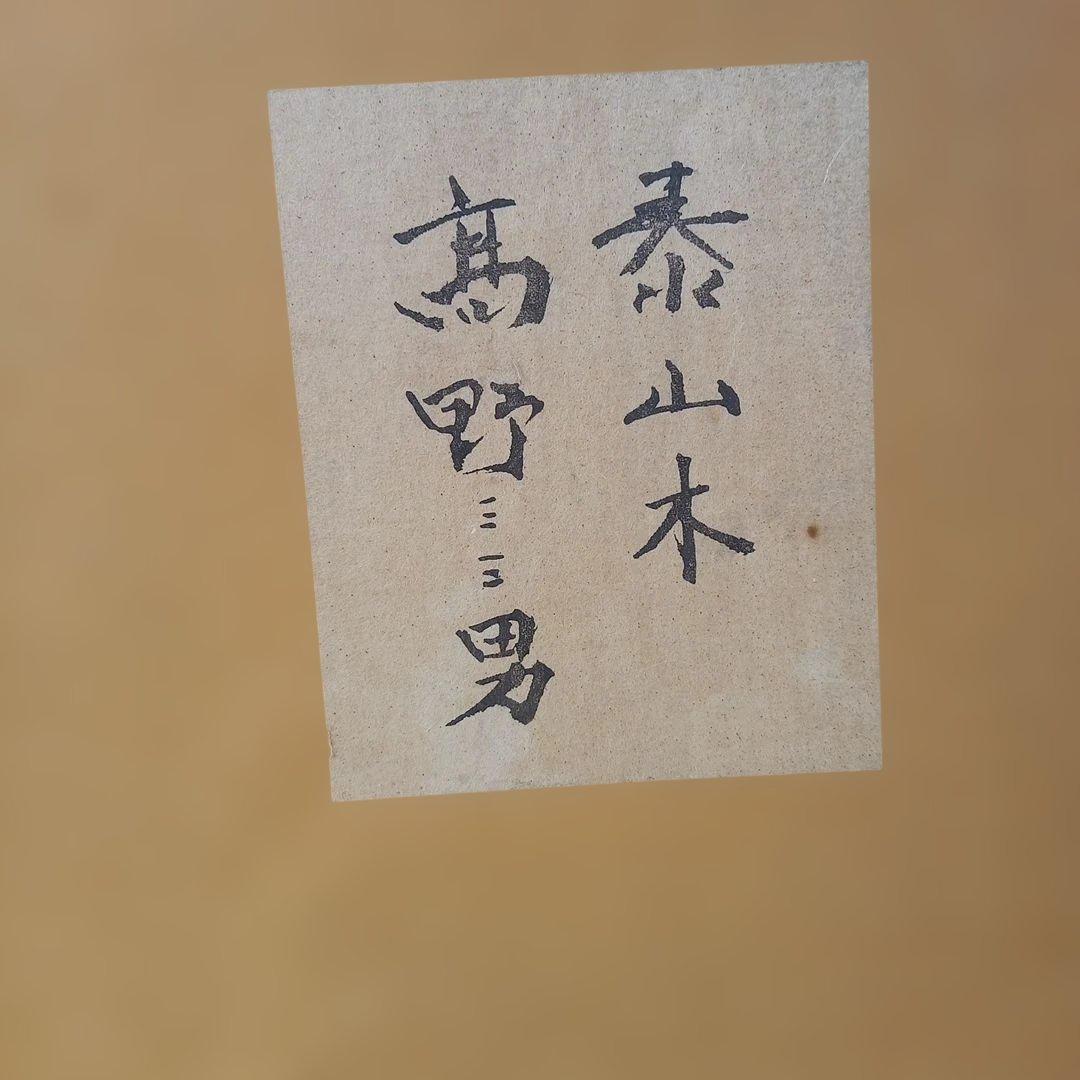 泰山木
髙野三三男